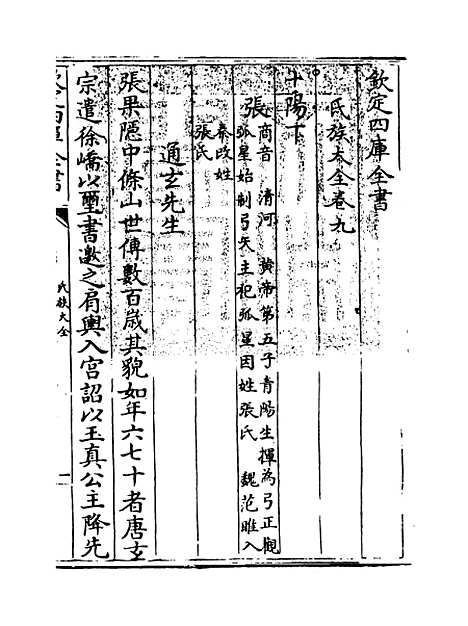 欽定四庫全書
氏族大全卷九
十陽下
張
商音 清河 黄帝第五子青陽生揮為弓正觀
弧星始制弓矢主祀弧星因姓張氏 魏范雎入
秦改姓
張氏
通玄先生
張果隠中條山世傳數百嵗其貌如年六七十者唐玄
宗遣徐嶠以璽書邀之肩輿入宫詔以玉真公主降先
氏族大全
一